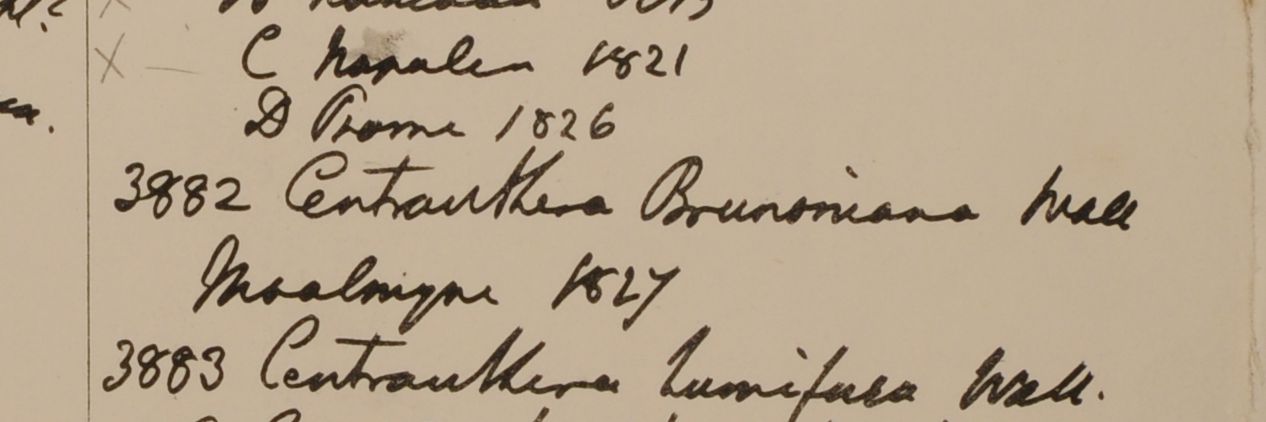 C Napalia 1821
D Prome 1826
3882 Centranthera Brunoniana Wall
Moalmyne 1827
3883 Centranthera humifusa Wall.